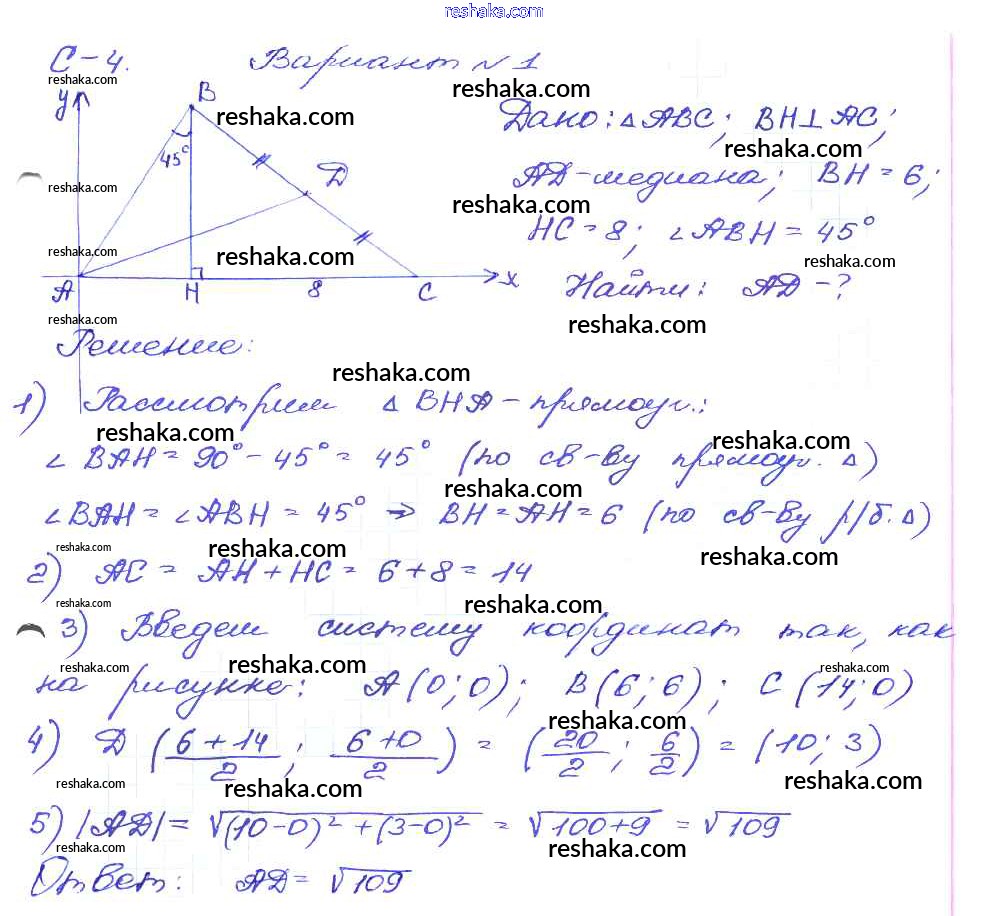 reshaka.com
С-4. Вариант №1
reshaka.com
y B
reshaka.com
reshaka.com
Дано: △ABC; BH⊥AC;
45°
reshaka.com
D
AD-медиана; BH=6;
reshaka.com
reshaka.com
HC=8; ∠ABH=45°
reshaka.com
reshaka.com
reshaka.com
A H 8 C x
Найти: AD-?
reshaka.com
reshaka.com
Решение:
reshaka.com
1) Рассмотрим △BHA-прямоуг.:
reshaka.com
reshaka.com
∠BAH=90°-45°=45° (по св-ву прямоуг. △)
reshaka.com
∠BAH=∠ABH=45° → BH=AH=6 (по св-ву р/б.△)
reshaka.com
reshaka.com
reshaka.com
2) AC=AH+HC=6+8=14
reshaka.com
reshaka.com
3) Введем систему координат так, как
reshaka.com
reshaka.com
reshaka.com
на рисунке: A(0;0); B(6;6); C(14;0)
reshaka.com
reshaka.com
4) D (6+14/2; 6+0/2) = (20/2; 6/2) = (10; 3)
reshaka.com
reshaka.com
reshaka.com
5) |AD|=√(10-0)²+(3-0)² = √100+9 = √109
reshaka.com
reshaka.com
Ответ: AD=√109